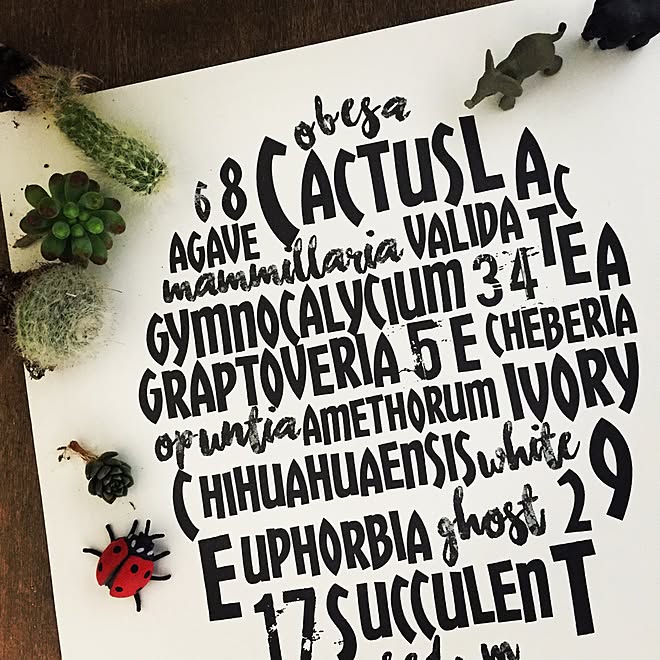 obesa
68 CACTUS LACTEA
AGAVE mammillaria VALIDA
GYMNOCALYCIUM 34
GRAPTOVERIA 5 ECHEBERIA
opuntia AMETHORUM IVORY
CHIHUAHUAENSIS white 9
EUPHORBIA ghost 2
17 SUCCULENT